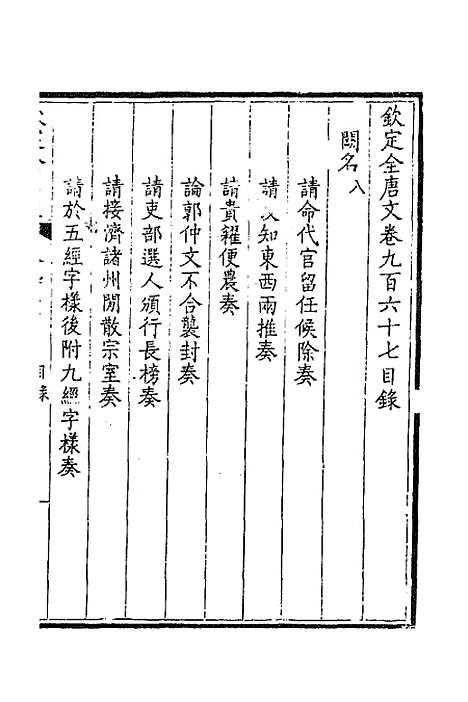 欽定全唐文卷九百六十七目錄
闕名八
請命代官留任候除奏
請知東西兩推奏
請貴糴便農奏
論郭仲文不合襲封奏
請吏部選人頒行長榜奏
請接濟諸州閒散宗室奏
請於五經字樣後附九經字樣奏
目錄 一